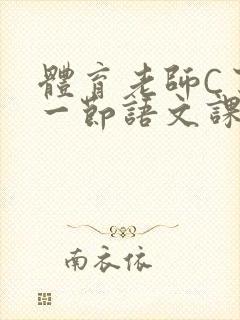 體育老師C
一節語文課
南衣依